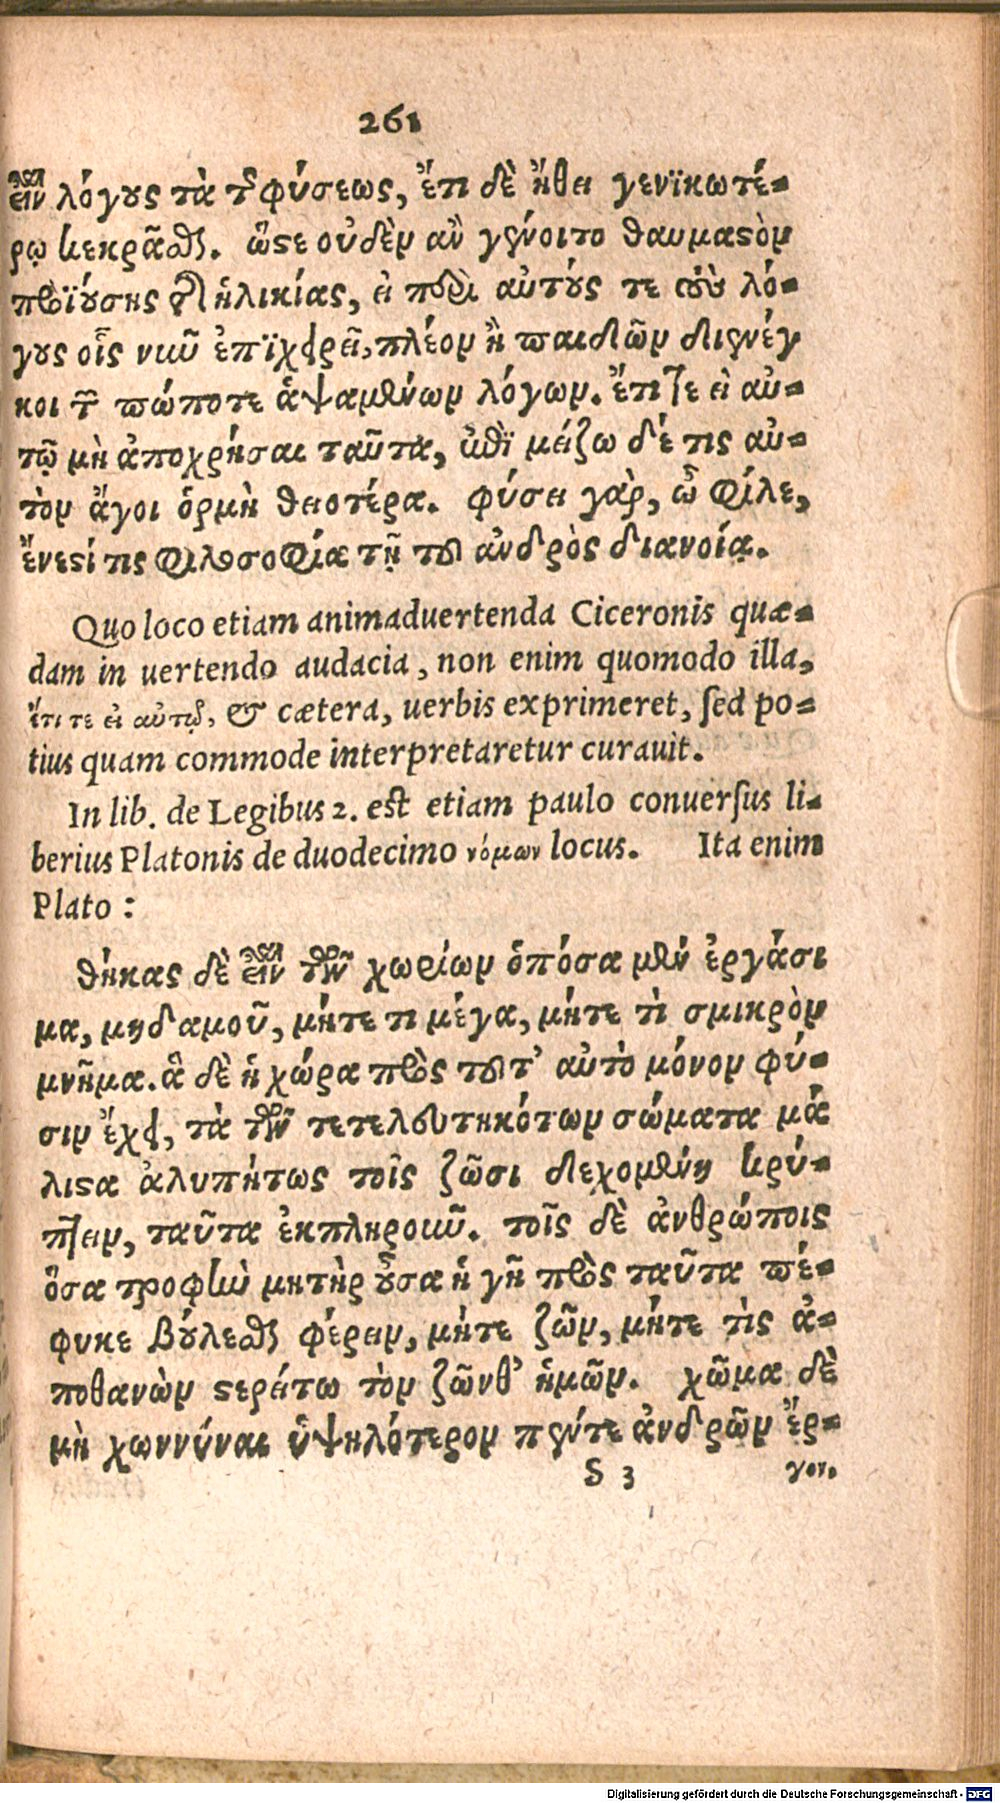 261
εἶναι λόγους τὰ τῆς φύσεως, ἔτι δὲ ἤθει γενϊκωτέ-
ρῳ κεκρᾶσθαι. ὥστε οὐδὲν ἂν γένοιτο θαυμαστὸν
προϊούσης τῆς ἡλικίας, εἰ περὶ αὐτούς τε τοὺς λό-
γους οἷς νῦν ἐπϊχειρεῖ, πλέον ἢ παιδῶν διενέγ
κοι τῶν πώποτε ἁψαμένων λόγων. ἔτι τε εἰ αὐ-
τῷ μὴ ἀποχρήσαι ταῦτα, ἐπὶ μείζω δέ τις αὐ-
τὸν ἄγοι ὁρμὴ θειοτέρα. φύσει γὰρ, ὦ φίλε,
ἔνεστί τις φιλοσοφία τῇ τοῦ ἀνδρὸς διανοίᾳ.
Quo loco etiam animaduertenda Ciceronis quæ-
dam in uertendo audacia, non enim quomodo illa,
ἔτι τε εἰ αὐτῷ, & cætera, uerbis exprimeret, sed po-
tius quam commode interpretaretur curauit.
In lib. de Legibus 2. est etiam paulo conuersus li-
berius Platonis de duodecimo νόμων locus. Ita enim
Plato :
θήκας δὲ εἶναι τῶν χωρίων ὁπόσα μὲν ἐργάσι
μα, μηδαμοῦ, μήτε τι μέγα, μήτε τὶ σμικρὸν
μνῆμα. ἃ δὲ ἡ χώρα πρὸς τοῦτ' αὐτὸ μόνον φύ-
σιν ἔχει, τὰ τῶν τετελευτηκότων σώματα μά
λιστα ἀλυπήτως τοῖς ζῶσι δεχομένη κρύ-
πτειν, ταῦτα ἐκπληροῦν. τοῖς δὲ ἀνθρώποις
ὅσα τροφὴν μητὴρ οὖσα ἡ γῆ πρὸς ταῦτα πέ-
φυκε βούλεσθαι φέρειν, μήτε ζῶν, μήτε τὶς ἀ-
ποθανὼν στερείτω τὸν ζῶνθ' ἡμῶν. χῶμα δὲ
μὴ χωννύναι ὑψηλότερον πέντε ἀνδρῶν ἔρ-
S 3 γον.
Digitalisierung gefördert durch die Deutsche Forschungsgemeinschaft - DFG